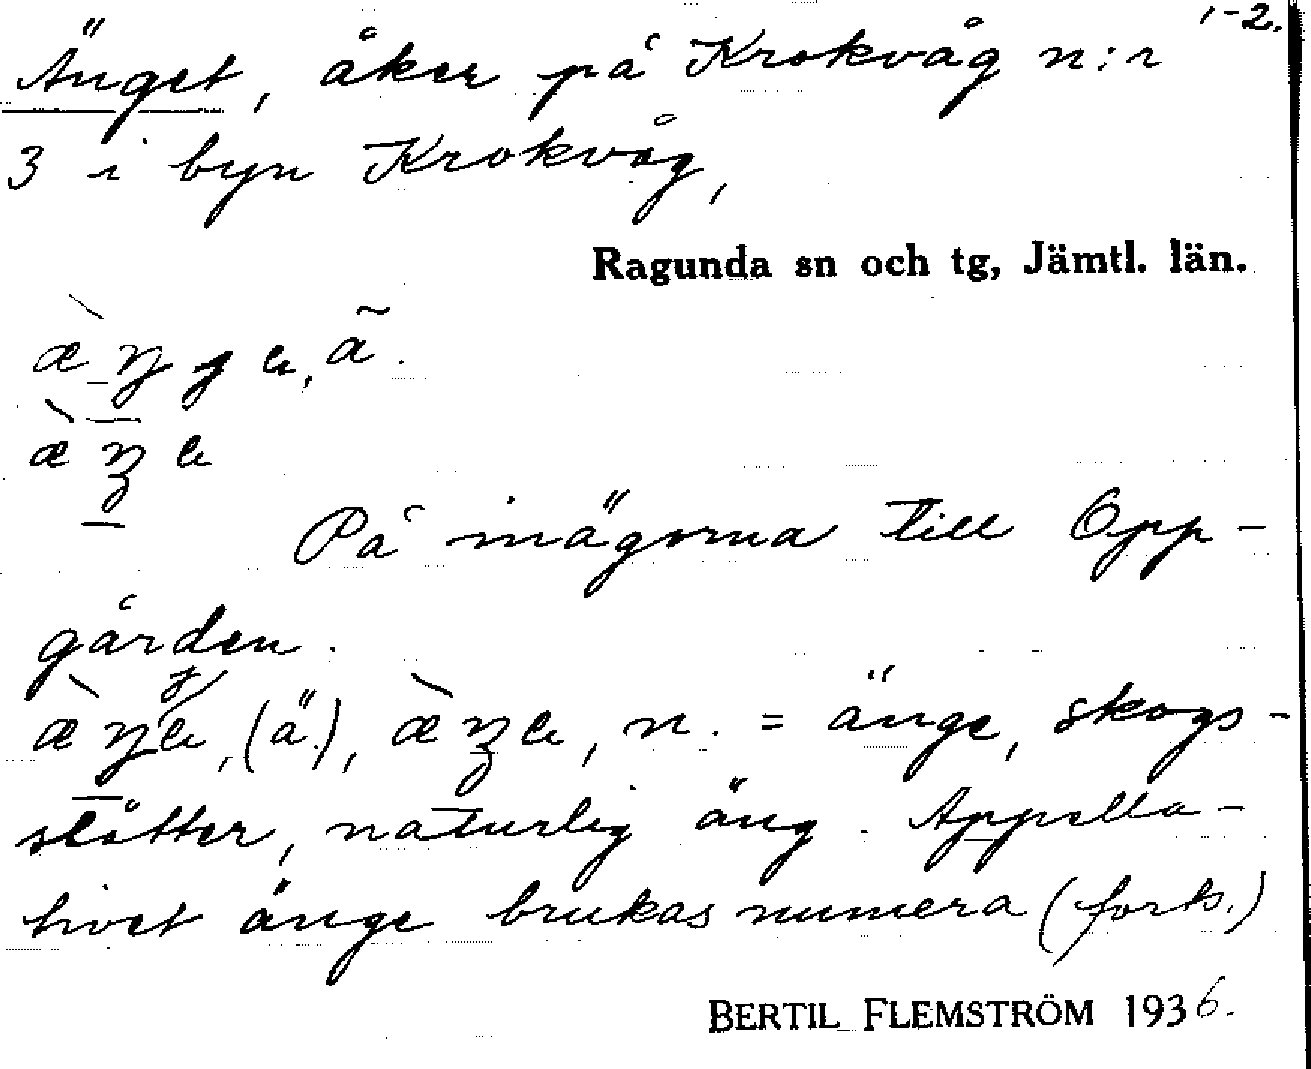 1-2.
Änget, åker på Krokvåg n:r
3 i byn Krokvåg,
Ragunda sn och tg, Jämtl. län.
På inägorna till Opp-
gården.
(ä.), n. = änge, skogs-
slåtter, naturlig äng. Appella-
tivet änge brukas numera (forts.)
BERTIL FLEMSTRÖM 1936.